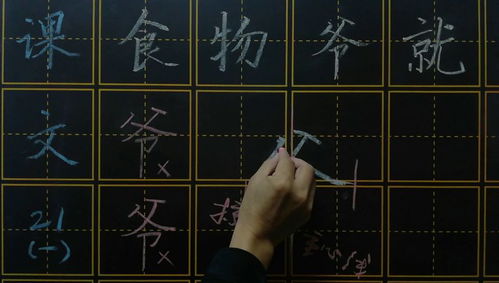 课 食 物 爷 就
文 爷 x
21 爷 x
(一)